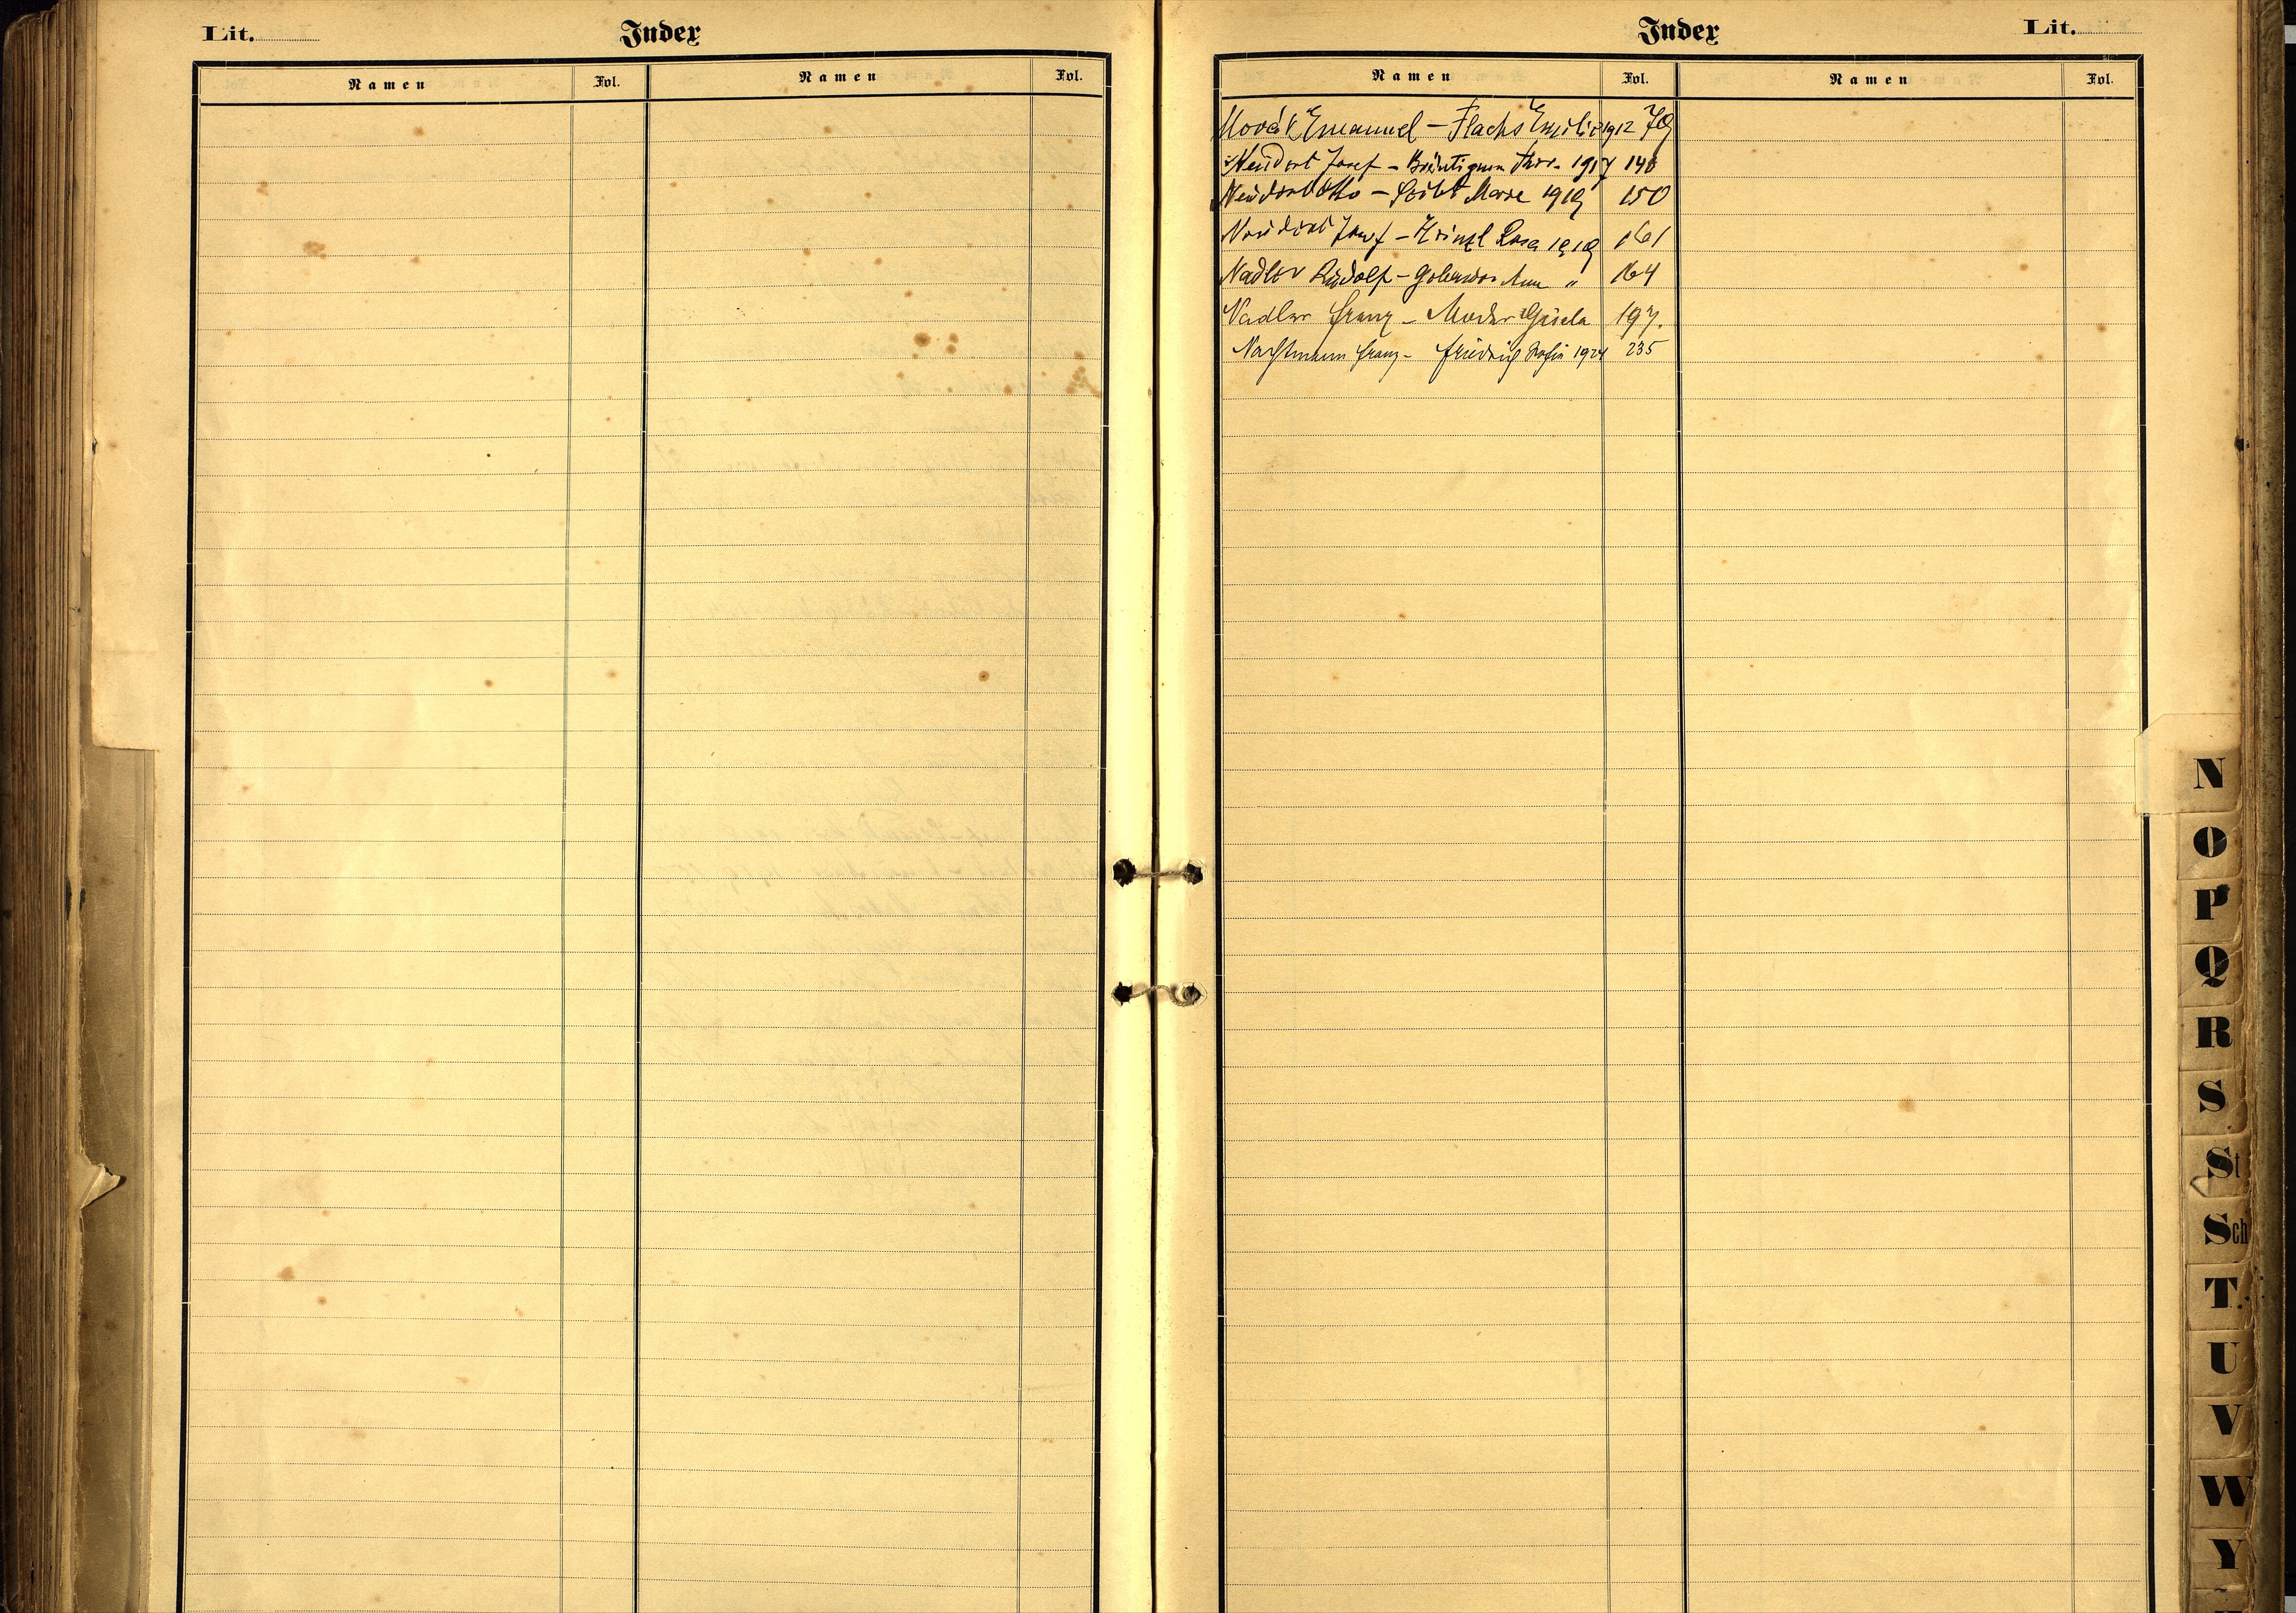 Lit. Index
Namen Fol. Namen Fol.
Index Lit.
Namen Fol. Namen Fol.
Novák Emanuel – Flachs Emilie 1912 79
Neudert Josef – Bräutigam Ther. 1917 148
Neudert Otto – Seibt Marie 1919 150
Neudert Josef – Heinzl Rosa 1919 161
Nadler Rudolf – Ann " 164
Nadler Franz – Moder Gisela 197.
Nachtmann Franz – Friedrich Sofia 1924 235
N
O
P
Q
R
S
St
Sch
T
U
V
W
Y